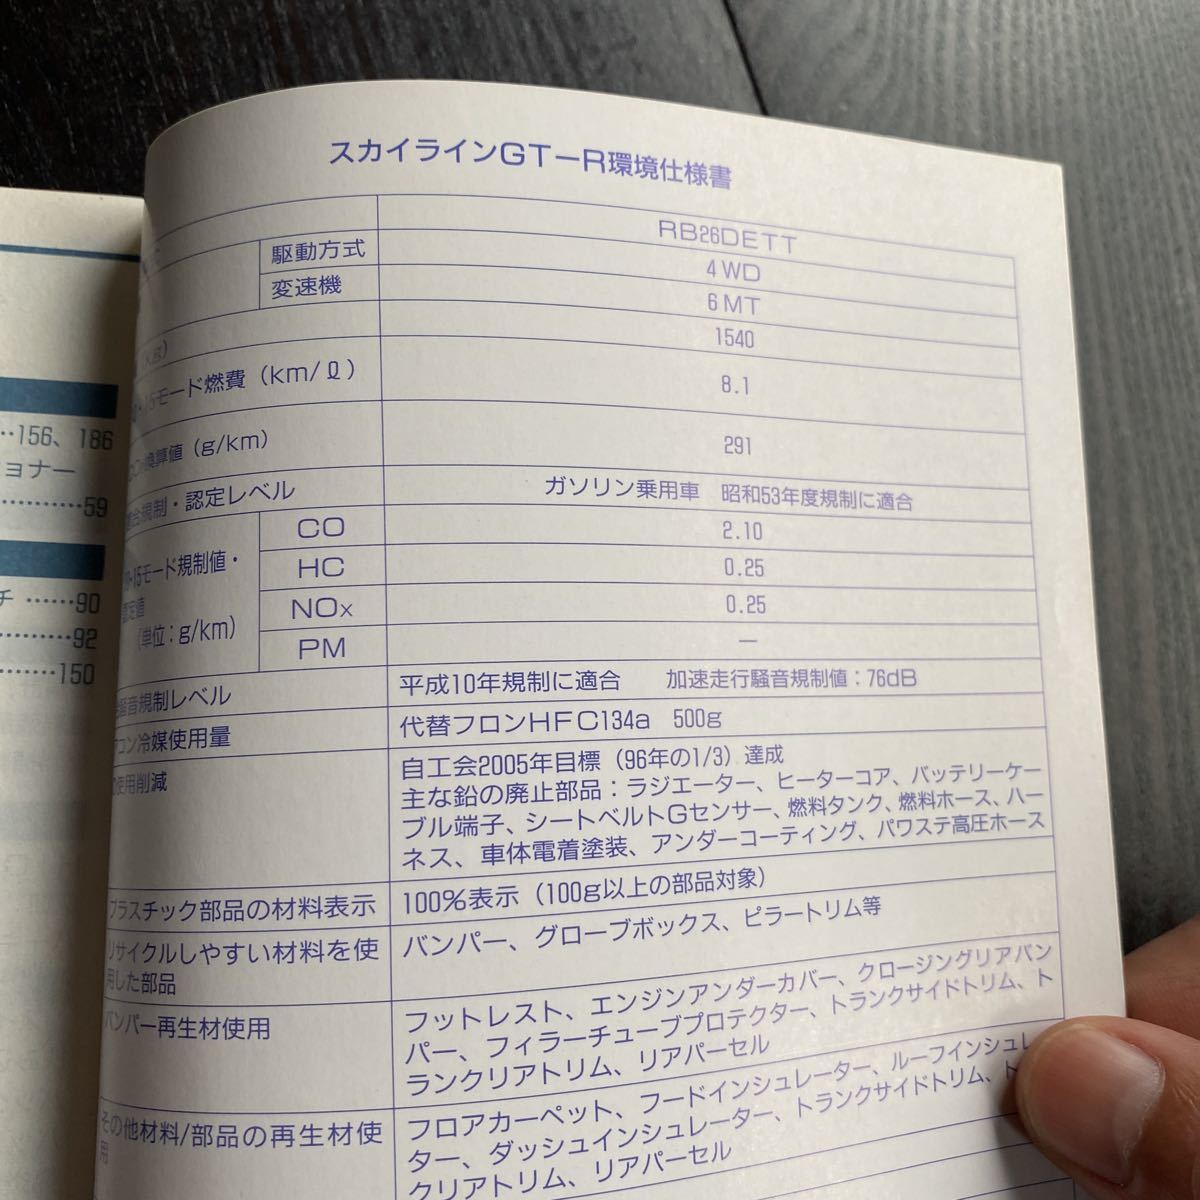 スカイラインGT－R環境仕様書
RB26DETT
駆動方式 4WD
変速機 6MT
1540
・15モード燃費（km/ℓ） 8.1
換算値（g/km） 291
規制・認定レベル ガソリン乗用車　昭和53年度規制に適合
CO 2.10
・15モード規制値・
HC 0.25
NOx 0.25
（単位：g/km）
PM －
騒音規制レベル 平成10年規制に適合　加速走行騒音規制値：76dB
コン冷媒使用量 代替フロンHFC134a　500g
使用削減 自工会2005年目標（96年の1/3）達成
主な鉛の廃止部品：ラジエーター、ヒーターコア、バッテリーケー
ブル端子、シートベルトGセンサー、燃料タンク、燃料ホース、ハー
ネス、車体電着塗装、アンダーコーティング、パワステ高圧ホース
プラスチック部品の材料表示 100%表示（100g以上の部品対象）
リサイクルしやすい材料を使 バンパー、グローブボックス、ピラートリム等
用した部品
バンパー再生材使用 フットレスト、エンジンアンダーカバー、クロージングリアバン
パー、フィラーチューブプロテクター、トランクサイドトリム、ト
ランクリアトリム、リアパーセル
その他材料/部品の再生材使 フロアカーペット、フードインシュレーター、ルーフインシュレ
用 ター、ダッシュインシュレーター、トランクサイドトリム、ト
クリアトリム、リアパーセル
…156、186
ョナー
………59
チ ……90
………92
………150